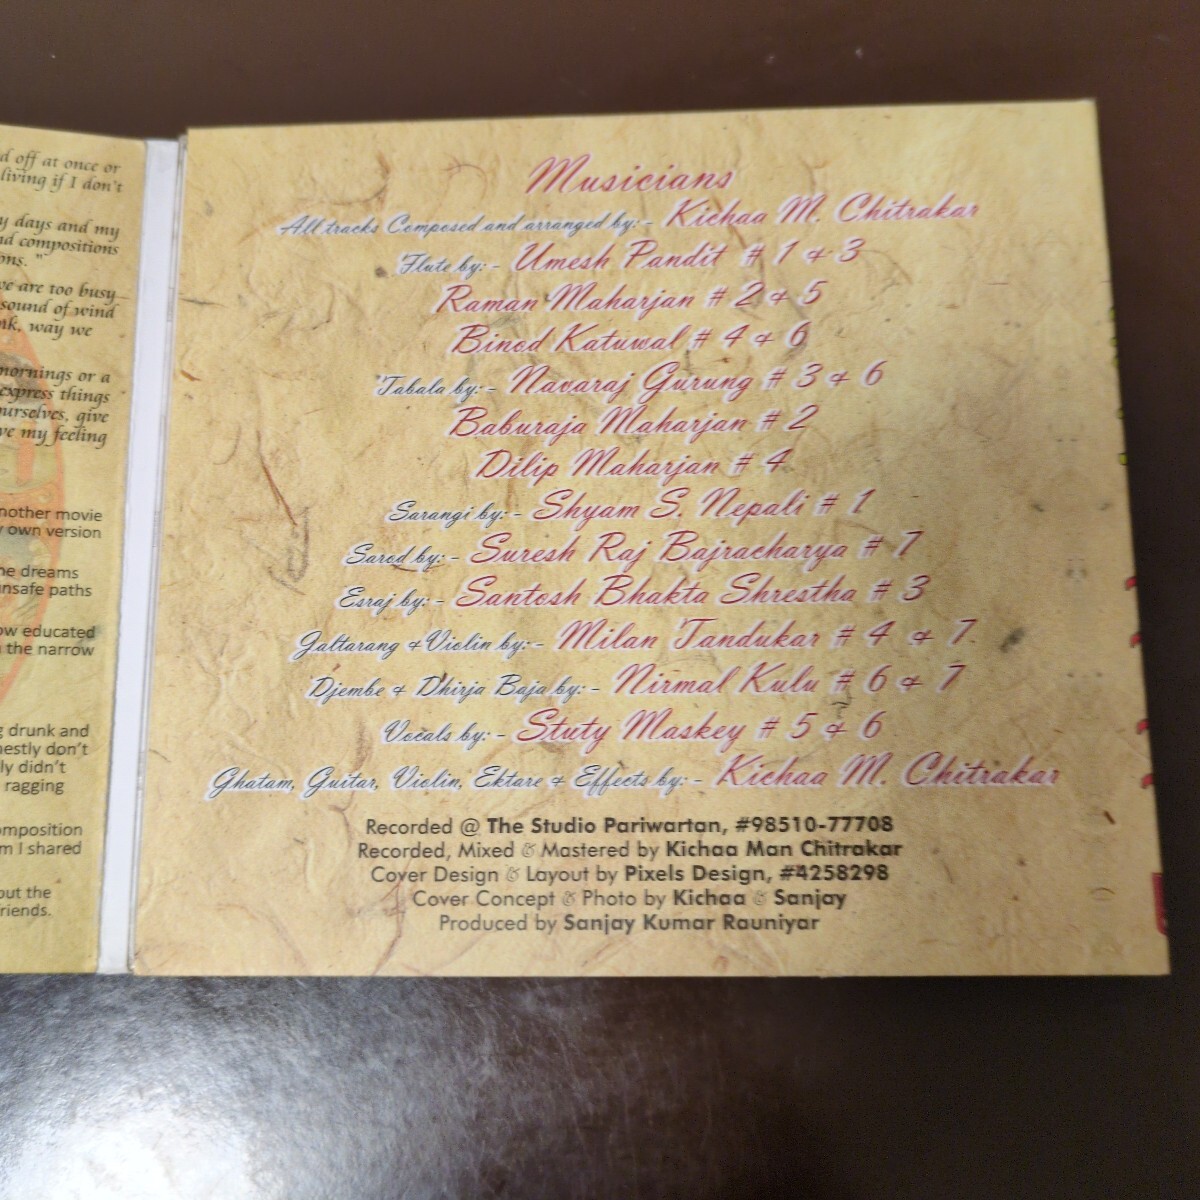 d off at once or
living if I don't
y days and my
nd compositions
ons. "
we are too busy
sound of wind
nk, way we
mornings or a
express things
ourselves, give
ve my feeling
nother movie
y own version
he dreams
unsafe paths
ow educated
the narrow
g drunk and
nestly don't
ly didn't
ragging
omposition
m I shared
out the
riends.
Musicians
All tracks Composed and arranged by:- Kichaa M. Chitrakar
Flute by:- Umesh Pandit # 1 & 3
Raman Maharjan # 2 & 5
Binod Katuwal # 4 & 6
Tabala by:- Navaraj Gurung # 3 & 6
Baburaja Maharjan # 2
Dilip Maharjan # 4
Sarangi by:- Shyam S. Nepali # 1
Sarod by:- Suresh Raj Bajracharya # 7
Esraj by:- Santosh Bhakta Shrestha # 3
Jaltarang & Violin by:- Milan Tandukar # 4 & 7.
Djembe & Dhirja Baja by:- Nirmal Kulu # 6 & 7
Vocals by:- Stuty Maskey # 5 & 6
Ghatam, Guitar, Violin, Ektare & Effects by:- Kichaa M. Chitrakar
Recorded @ The Studio Pariwartan, #98510-77708
Recorded, Mixed & Mastered by Kichaa Man Chitrakar
Cover Design & Layout by Pixels Design, #4258298
Cover Concept & Photo by Kichaa & Sanjay
Produced by Sanjay Kumar Rauniyar